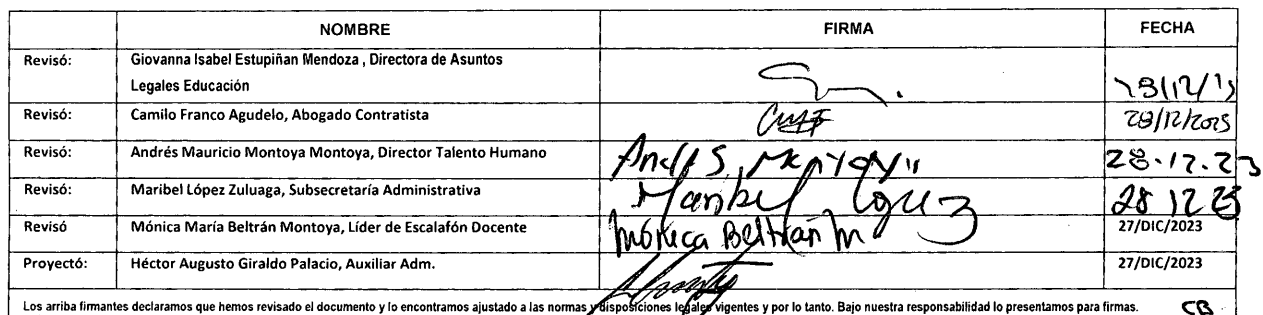 NOMBRE FIRMA FECHA
Revisó: Giovanna Isabel Estupiñan Mendoza , Directora de Asuntos
Legales Educación
Revisó: Camilo Franco Agudelo, Abogado Contratista 28/12/2023
Revisó: Andrés Mauricio Montoya Montoya, Director Talento Humano Andrés Montoya 28.12.23
Revisó: Maribel López Zuluaga, Subsecretaría Administrativa Maribel López 28 12 23
Revisó Mónica María Beltrán Montoya, Líder de Escalafón Docente Mónica Beltrán M 27/DIC/2023
Proyectó: Héctor Augusto Giraldo Palacio, Auxiliar Adm. 27/DIC/2023
Los arriba firmantes declaramos que hemos revisado el documento y lo encontramos ajustado a las normas y disposiciones legales vigentes y por lo tanto. Bajo nuestra responsabilidad lo presentamos para firmas. CB